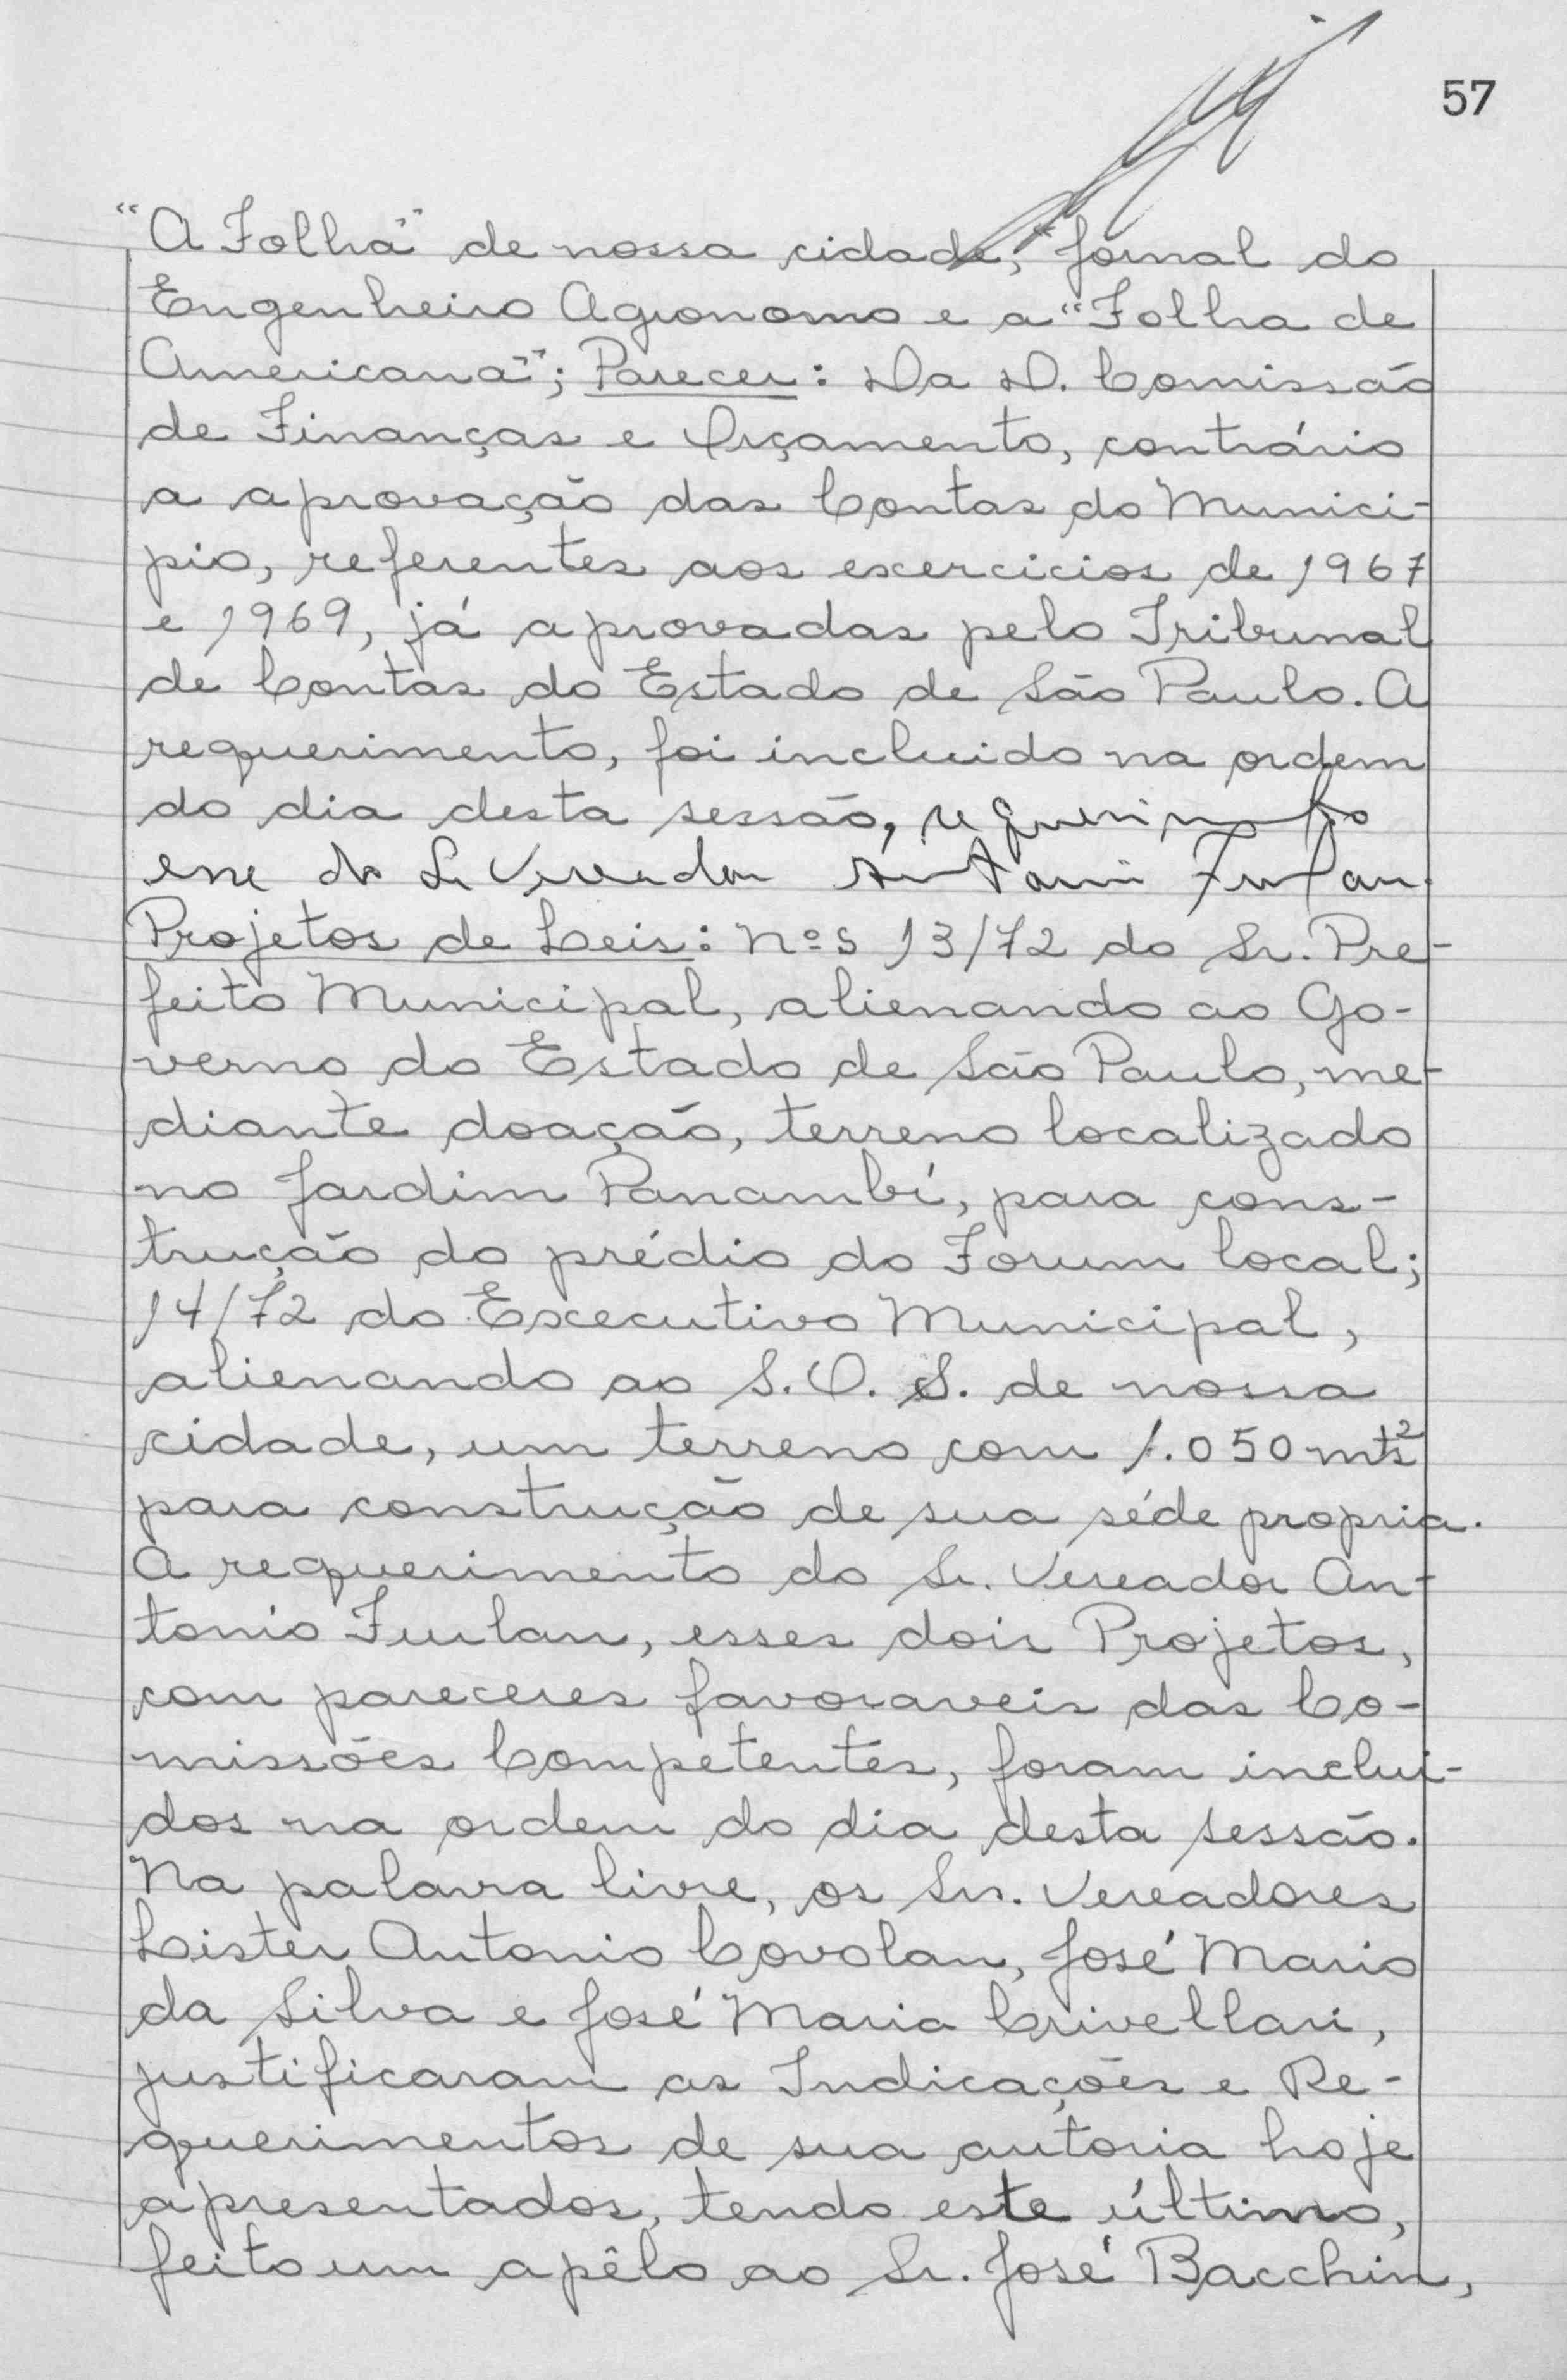 57
"A Folha" de nossa cidade, "Jornal do
Engenheiro Agronomo e a "Folha de
Americana"; Parecer: Da D. Comissão
de Finanças e Orçamento, contrário
a aprovação das Contas do Munici-
pio, referentes aos exercicios de 1967
e 1969, já aprovadas pelo Tribunal
de Contas do Estado de São Paulo. A
requerimento, foi incluido na ordem
do dia desta sessão, requerimento
esse do Sr Vereador Antonio Furlan.
Projetos de Leis: Nºs 13/72 do Sr. Pre-
feito Municipal, alienando ao Go-
verno do Estado de São Paulo, me-
diante doação, terreno localizado
no Jardim Panambí, para cons-
trução do prédio do Forum local;
14/72 do Executivo Municipal,
alienando ao S.O.S. de nossa
cidade, um terreno com 1.050 mts²
para construção de sua séde propria.
A requerimento do Sr. Vereador An-
tonio Furlan, esses dois Projetos,
com pareceres favoraveis das Co-
missões Competentes, foram inclui-
dos na ordem do dia desta sessão.
Na palavra livre, os Srs. Vereadores
Lister Antonio Covolan, José Mario
da Silva e José Maria Crivellari,
justificaram as Indicações e Re-
querimentos de sua autoria hoje
apresentados, tendo este último,
feito um apêlo ao Sr. José Bacchin,